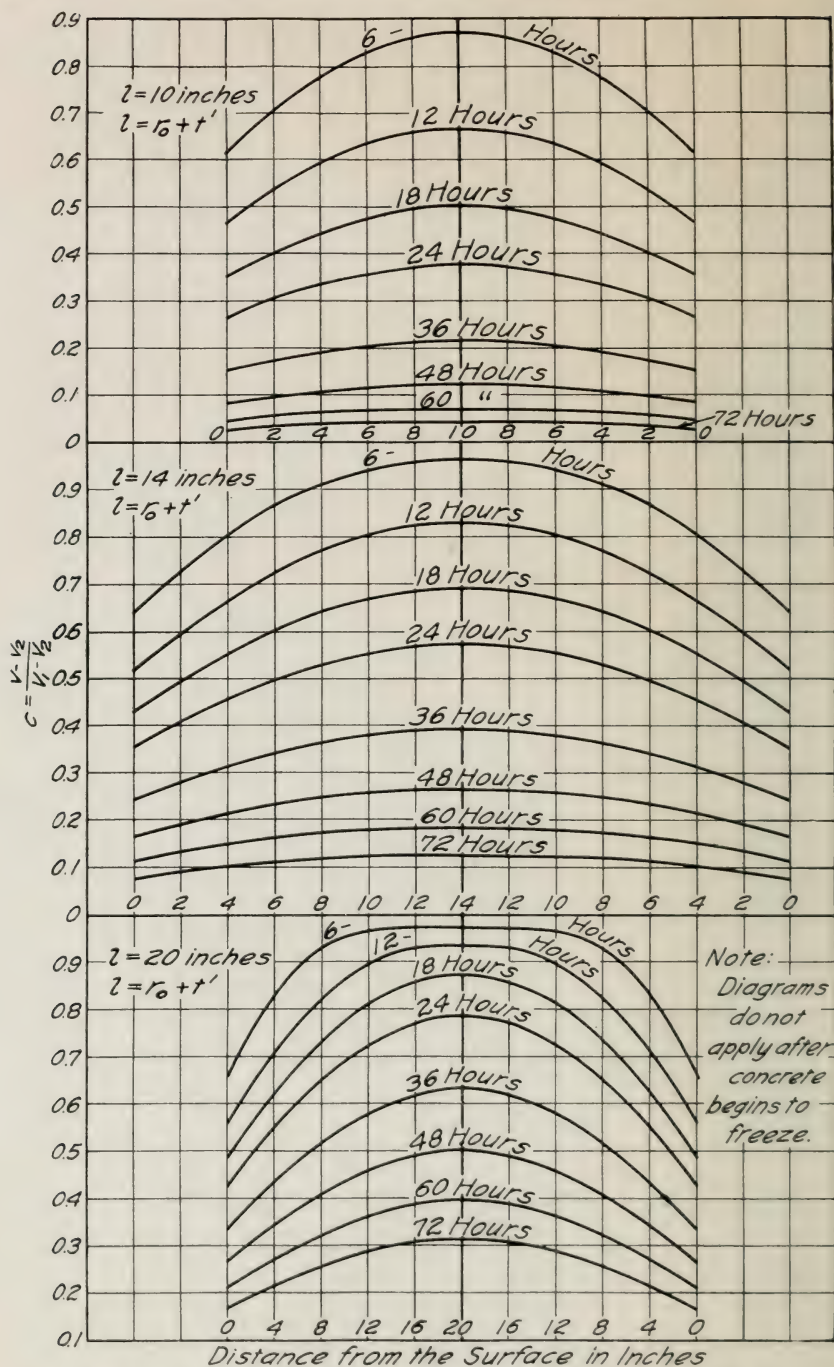 0.9
0.8
0.7
0.6
0.5
0.4
0.3
0.2
0.1
0
l = 10 inches
l = r₀ + t'
6- Hours
12 Hours
18 Hours
24 Hours
36 Hours
48 Hours
60 "
72 Hours
0 2 4 6 8 10 8 6 4 2 0
c = V-V₂ / V₁-V₂
0.9
0.8
0.7
0.6
0.5
0.4
0.3
0.2
0.1
0
l = 14 inches
l = r₀ + t'
6- Hours
12 Hours
18 Hours
24 Hours
36 Hours
48 Hours
60 Hours
72 Hours
0 2 4 6 8 10 12 14 12 10 8 6 4 2 0
0.9
0.8
0.7
0.6
0.5
0.4
0.3
0.2
0.1
l = 20 inches
l = r₀ + t'
6- Hours
12- Hours
18 Hours
24 Hours
36 Hours
48 Hours
60 Hours
72 Hours
Note:
Diagrams
do not
apply after
concrete
begins to
freeze.
0 4 8 12 16 20 16 12 8 4 0
Distance from the Surface in Inches